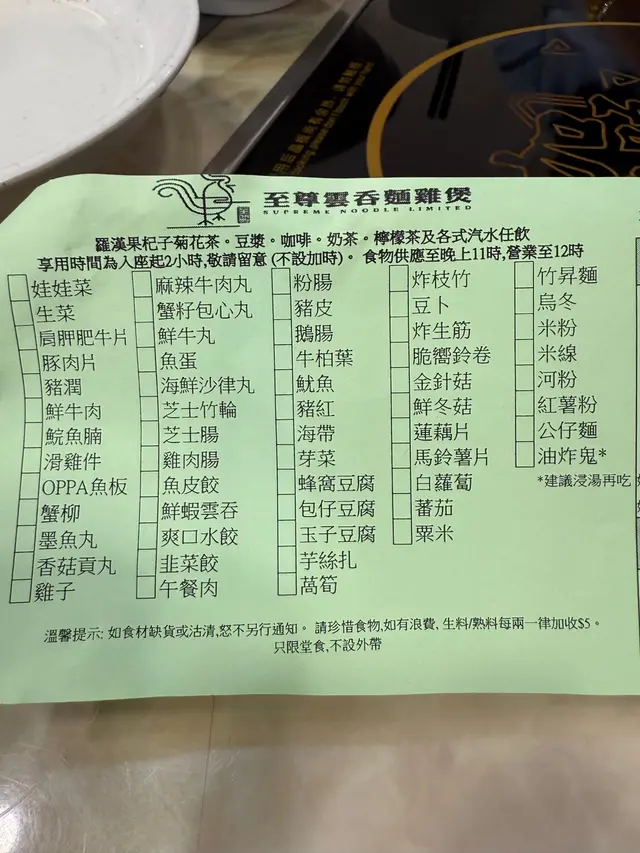 至尊雲吞麵雞煲
SUPREME NOODLE LIMITED
羅漢果杞子菊花茶。豆漿。咖啡。奶茶。檸檬茶及各式汽水任飲
享用時間為入座起2小時,敬請留意 (不設加時)。 食物供應至晚上11時,營業至12時
娃娃菜
生菜
肩胛肥牛片
豚肉片
豬潤
鮮牛肉
鯇魚腩
滑雞件
OPPA魚板
蟹柳
墨魚丸
香菇貢丸
雞子
麻辣牛肉丸
蟹籽包心丸
鮮牛丸
魚蛋
海鮮沙律丸
芝士竹輪
芝士腸
雞肉腸
魚皮餃
鮮蝦雲吞
爽口水餃
韭菜餃
午餐肉
粉腸
豬皮
鵝腸
牛柏葉
魷魚
豬紅
海帶
芽菜
蜂窩豆腐
包仔豆腐
玉子豆腐
芋絲扎
萵筍
炸枝竹
豆卜
炸生筋
脆嚮鈴卷
金針菇
鮮冬菇
蓮藕片
馬鈴薯片
白蘿蔔
蕃茄
粟米
竹昇麵
烏冬
米粉
米線
河粉
紅薯粉
公仔麵
油炸鬼*
*建議浸湯再吃
溫馨提示: 如食材缺貨或沽清,恕不另行通知。 請珍惜食物,如有浪費, 生料/熟料每兩一律加收$5。
只限堂食,不設外帶